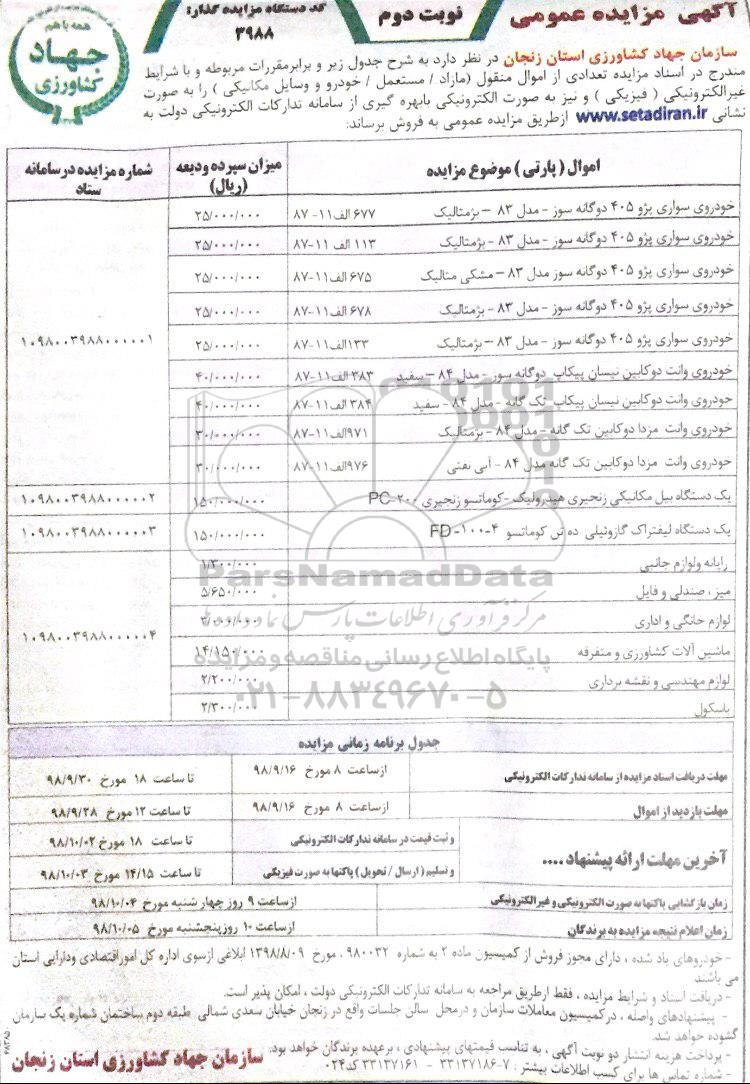 آگهی مزایده عمومی
نوبت دوم
کد دستگاه مزایده گذار:
۳۹۸۸
همه با هم
جهاد
کشاورزی
سازمان جهاد کشاورزی استان زنجان در نظر دارد به شرح جدول زیر و برابر مقررات مربوطه و با شرایط
مندرج در اسناد مزایده تعدادی از اموال منقول (مازاد / مستعمل / خودرو و وسایل مکانیکی ) را به صورت
غیرالکترونیکی ( فیزیکی ) و نیز به صورت الکترونیکی بابهره گیری از سامانه تدارکات الکترونیکی دولت به
نشانی www.setadiran.ir ازطریق مزایده عمومی به فروش برساند:
اموال ( پارتی ) موضوع مزایده
میزان سپرده ودیعه
(ریال)
شماره مزایده درسامانه
ستاد
خودروی سواری پژو ۴۰۵ دوگانه سوز - مدل ۸۳ – بژمتالیک ۶۷۷ الف۱۱- ۸۷ ۲۵/۰۰۰/۰۰۰
خودروی سواری پژو ۴۰۵ دوگانه سوز - مدل ۸۳ - بژمتالیک ۱۱۳ الف ۱۱-۸۷ ۲۵/۰۰۰/۰۰۰
خودروی سواری پژو ۴۰۵ دوگانه سوز مدل ۸۳ – مشکی متالیک ۶۷۵الف۱۱-۸۷ ۲۵/۰۰۰/۰۰۰
خودروی سواری پژو ۴۰۵ دوگانه سوز - مدل ۸۳ - بژمتالیک ۶۷۸ الف۱۱-۸۷ ۲۵/۰۰۰/۰۰۰
خودروی سواری پژو ۴۰۵ دوگانه سوز - مدل ۸۳ – بژمتالیک ۱۳۳الف۱۱-۸۷ ۲۵/۰۰۰/۰۰۰
۱۰۹۸۰۰۳۹۸۸۰۰۰۰۰۱
خودروی وانت دوکابین نیسان پیکاپ دوگانه سوز - مدل ۸۴ – سفید ۳۸۳ الف۱۱-۸۷ ۴۰/۰۰۰/۰۰۰
خودروی وانت دوکابین نیسان پیکاپ تک گانه - مدل ۸۴ - سفید ۳۸۴ الف۱۱-۸۷ ۴۰/۰۰۰/۰۰۰
خودروی وانت مزدا دوکابین تک گانه - مدل ۸۴ - بژمتالیک ۹۷۱الف۱۱-۸۷ ۳۰/۰۰۰/۰۰۰
خودروی وانت مزدا دوکابین تک گانه مدل ۸۴ - آبی نفتی ۹۷۶الف۱۱-۸۷ ۳۰/۰۰۰/۰۰۰
یک دستگاه بیل مکانیکی زنجیری هیدرولیک -کوماتسو زنجیری PC-۲۰۰ ۱۵۰/۰۰۰/۰۰۰ ۱۰۹۸۰۰۳۹۸۸۰۰۰۰۰۲
یک دستگاه لیفتراک گازوئیلی ده تن کوماتسو FD-۱۰۰-۴ ۱۵۰/۰۰۰/۰۰۰ ۱۰۹۸۰۰۳۹۸۸۰۰۰۰۰۳
رایانه ولوازم جانبی ۱/۳۰۰/۰۰۰
میز ، صندلی و فایل ۵/۶۵۰/۰۰۰
لوازم خانگی و اداری ۲/۰۰۰/۰۰۰
۱۰۹۸۰۰۳۹۸۸۰۰۰۰۰۴
ماشین آلات کشاورزی و متفرقه ۱۴/۱۵۰/۰۰۰
لوازم مهندسی و نقشه برداری ۲/۲۰۰/۰۰۰
باسکول ۲/۳۰۰/۰۰۰
ParsNamadData
مرکز فرآوری اطلاعات پارس نماد داده ها
پایگاه اطلاع رسانی مناقصه و مزایده
۰۲۱-۸۸۳۴۹۶۷۰-۵
جدول برنامه زمانی مزایده
مهلت دریافت اسناد مزایده از سامانه تدارکات الکترونیکی ازساعت ۸ مورخ ۹۸/۹/۱۶ تا ساعت ۱۸ مورخ ۹۸/۹/۳۰
مهلت بازدید از اموال ازساعت ۸ مورخ ۹۸/۹/۱۶ تا ساعت ۱۲ مورخ ۹۸/۹/۲۸
آخرین مهلت ارائه پیشنهاد ....
و ثبت قیمت در سامانه تدارکات الکترونیکی تا ساعت ۱۸ مورخ ۹۸/۱۰/۰۲
و تسلیم ( ارسال / تحویل ) پاکتها به صورت فیزیکی تا ساعت ۱۴/۱۵ مورخ ۹۸/۱۰/۰۳
زمان بازگشایی پاکتها به صورت الکترونیکی و غیرالکترونیکی ازساعت ۹ روز چهارشنبه مورخ ۹۸/۱۰/۰۴
زمان اعلام نتیجه مزایده به برندگان ازساعت ۱۰ روزپنجشنبه مورخ ۹۸/۱۰/۰۵
- خودروهای یاد شده ، دارای مجوز فروش از کمیسیون ماده ۲ به شماره ۹۸۰۰۳۲ ، مورخ ۱۳۹۸/۸/۰۹ ابلاغی ازسوی اداره کل اموراقتصادی ودارایی استان
می باشند
- دریافت اسناد و شرایط مزایده ، فقط ازطریق مراجعه به سامانه تدارکات الکترونیکی دولت ، امکان پذیر است.
- پیشنهادهای واصله ، درکمیسیون معاملات سازمان و درمحل سالن جلسات واقع در زنجان خیابان سعدی شمالی طبقه دوم ساختمان شماره یک سازمان
گشوده خواهد شد.
- پرداخت هزینه انتشار دو نوبت آگهی ، به تناسب قیمتهای پیشنهادی ، برعهده برندگان خواهد بود.
- شماره تماس ها برای کسب اطلاعات بیشتر : ۷-۳۳۱۳۷۱۸۶ - ۳۳۱۳۷۱۶۱ کد۰۲۴
سازمان جهاد کشاورزی استان زنجان